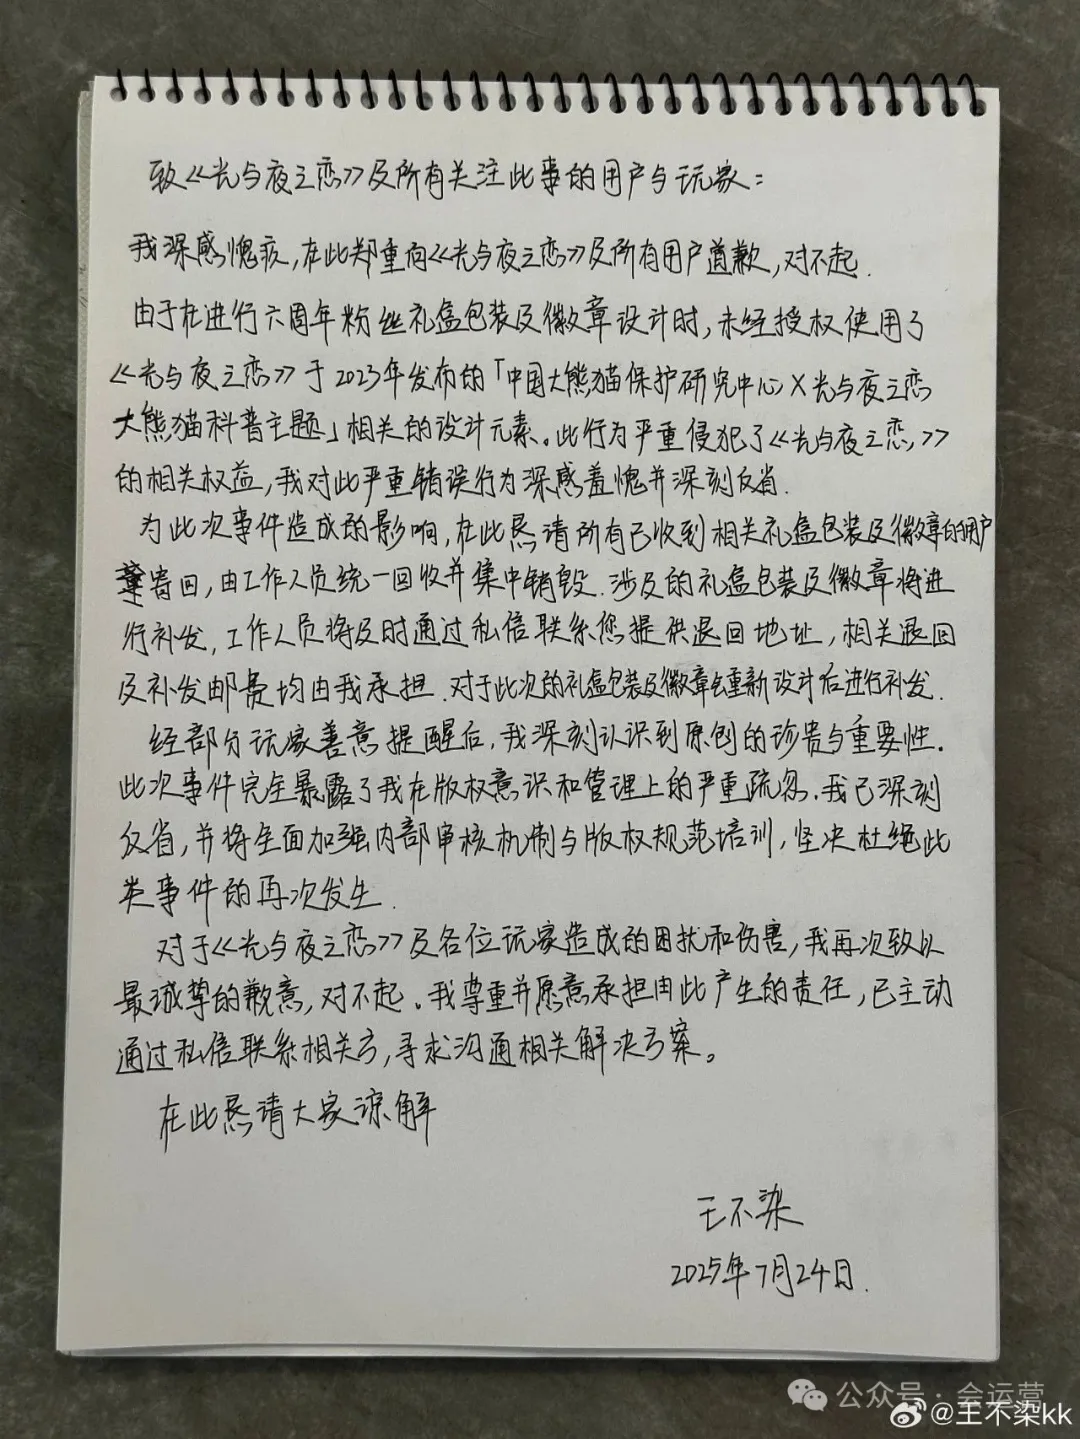 致《光与夜之恋》及所有关注此事的用户与玩家：
我深感愧疚，在此郑重向《光与夜之恋》及所有用户道歉，对不起.
由于在进行六周年粉丝礼盒包装及徽章设计时，未经授权使用了
《光与夜之恋》于2023年发布的「中国大熊猫保护研究中心X光与夜之恋
大熊猫科普主题」相关的设计元素。此行为严重侵犯了《光与夜之恋》
的相关权益，我对此严重错误行为深感羞愧并深刻反省.
为此次事件造成的影响，在此恳请所有已收到相关礼盒包装及徽章的用户
寄回，由工作人员统一回收并集中销毁.涉及的礼盒包装及徽章将进
行补发，工作人员将及时通过私信联系您提供退回地址，相关退回
及补发邮费均由我承担.对于此次的礼盒包装及徽章会重新设计后进行补发.
经部分玩家善意提醒后，我深刻认识到原创的珍贵与重要性.
此次事件完全暴露了我在版权意识和管理上的严重疏忽.我已深刻
反省，并将全面加强内部审核机制与版权规范培训，坚决杜绝此
类事件的再次发生.
对于《光与夜之恋》及各位玩家造成的困扰和伤害，我再次致以
最诚挚的歉意，对不起.我尊重并愿意承担由此产生的责任，已主动
通过私信联系相关方，寻求沟通相关解决方案。
在此恳请大家谅解
王不染
2025年7月24日.
公众号·会运营
@王不染kk